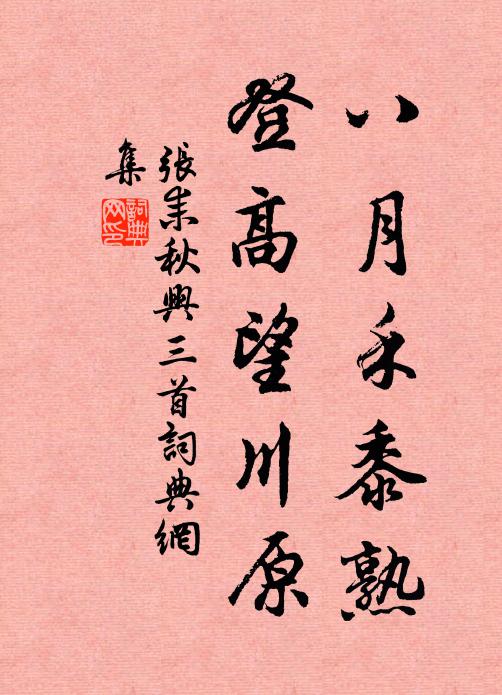 八月禾黍熟
登高望川原
張耒秋興三首詞典網
集
詞典
网印